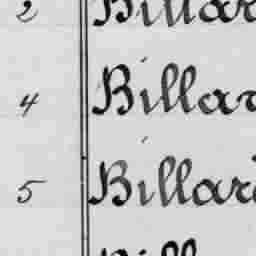 2 Billar
4 Billar
5 Billar
Bill